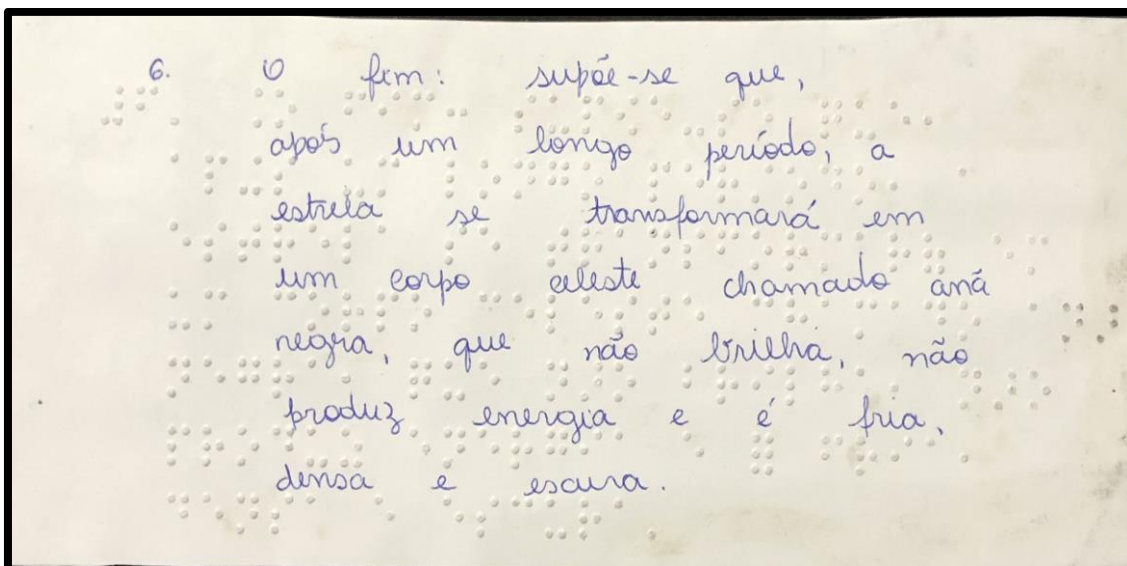 6. O fim: supõe-se que,
após um longo período, a
estrela se transformará em
um corpo celeste chamado anã
negra, que não brilha, não
produz energia e é fria,
densa e escura.